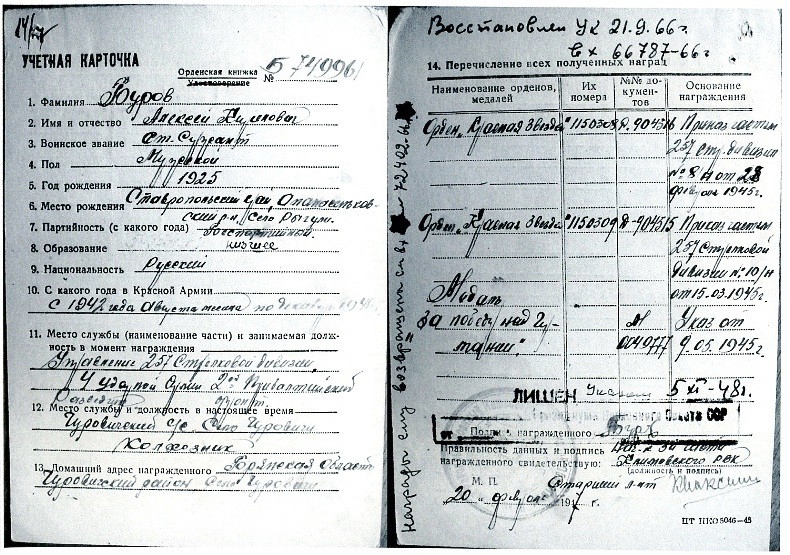 УЧЕТНАЯ КАРТОЧКА
Орденская книжка
Удостоверение № 574996
1. Фамилия Буров
2. Имя и отчество Алексей
3. Воинское звание Ст. Сержант
4. Пол Мужской
5. Год рождения 1925
6. Место рождения Ставропольский край,
7. Партийность (с какого года) беспартийный
8. Образование низшее
9. Национальность Русский
10. С какого года в Красной Армии
с 1942 года Августа месяца по декабрь
11. Место службы (наименование части) и занимаемая долж-
ность в момент награждения
Управление 257 Стрелковой дивизии,
4 ударной Армии 2го Прибалтийской
фронт.
12. Место службы и должность в настоящее время
Чуровичский с/с село Чуровичи
Колхозник
13. Домашний адрес награжденного Брянская область
Чуровичский район село Чуровичи
Восстановлен УК 21.9.66г.
вх 66787-66г
14. Перечисление всех полученных наград
Наименование орденов, медалей
Их номера
№№ до-кументов
Основание награждения
Орден „Красная Звезда" 1150308 Приказ частям
257 стр. дивизии
№ 8/н от 28
февраля 1945г.
Орден „Красная Звезда" 1150309 Приказ частям
257 Стрелковой
дивизии № 10/н
от 15.03.1945г.
Медаль
„За победу над Гер-
манией".
М
0049777
Указ от
9.05.1945г.
ЛИШЕН Указом 5 XI-48г.
Подпись награжденного
Правильность данных и подпись
награжденного свидетельствую:
Климовского РВК
(должность и подпись)
М. П. Старший л-нт
20 февраля 1947 г.
Награды ему возвращены см вх
ЦТ НКО 5046-45